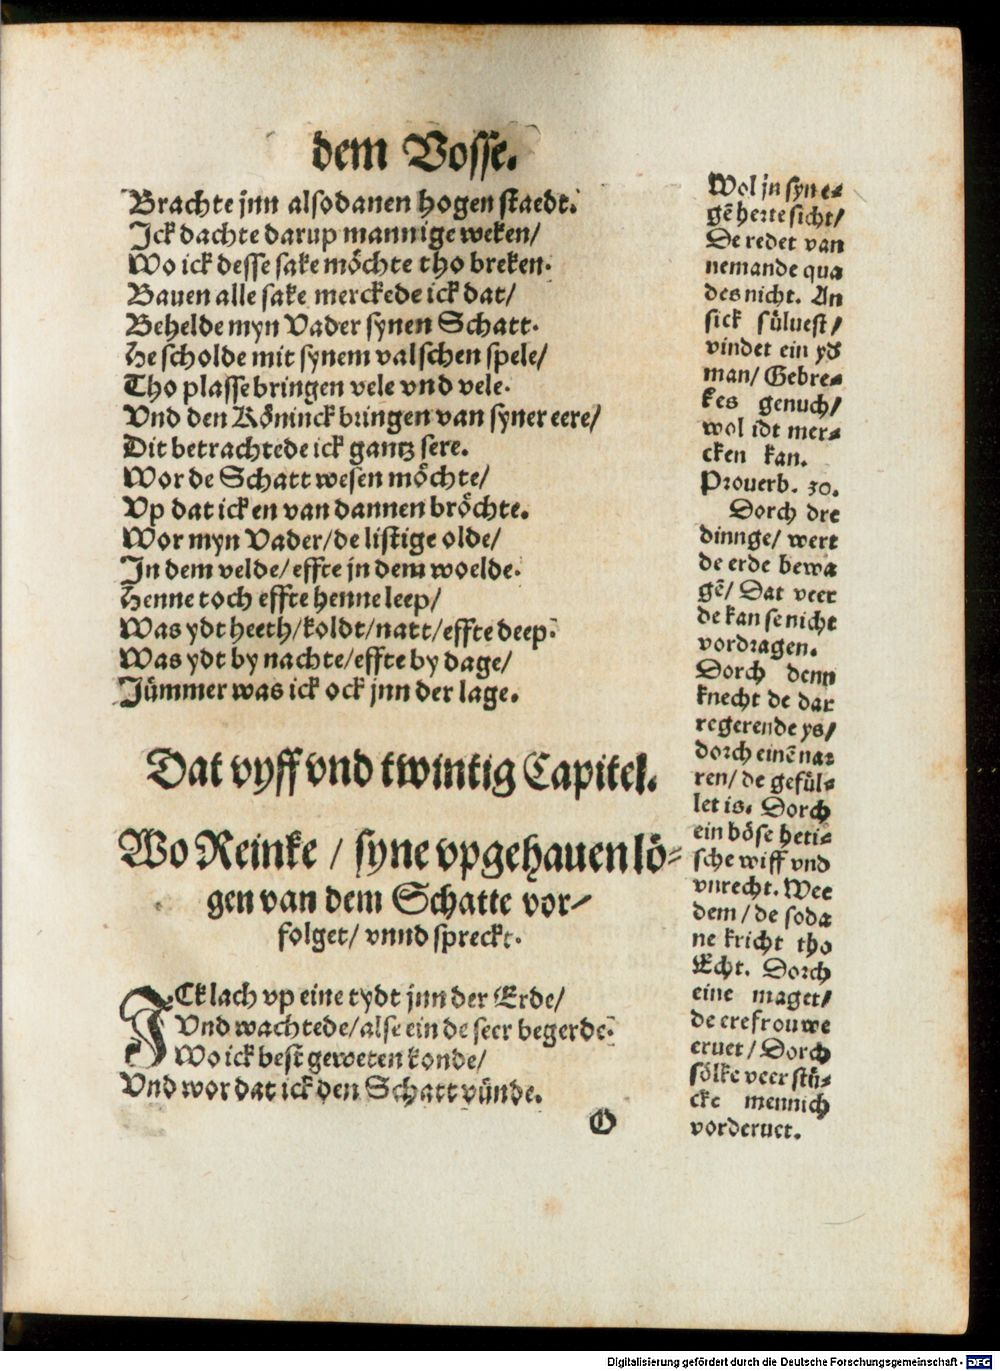 dem Vosse.
Brachte jnn alsodanen hogen staedt.
Jck dachte darup mannige weken/
Wo ick desse sake möchte tho breken.
Bauen alle sake merckede ick dat/
Behelde myn Vader synen Schatt.
He scholde mit synem valschen spele/
Tho plasse bringen vele vnd vele.
Vnd den Köninck bringen van syner eere/
Dit betrachtede ick gantz sere.
Wor de Schatt wesen möchte/
Vp dat ick en van dannen bröchte.
Wor myn Vader/de listige olde/
Jn dem velde/effte jn dem woelde.
Henne toch effte henne leep/
Was ydt heeth/koldt/natt/effte deep.
Was ydt by nachte/effte by dage/
Jümmer was ick ock jnn der lage.
Dat vyff vnd twintig Capitel.
Wo Reinke / syne vpgehauen lö-
gen van dem Schatte vor-
folget/ vnnd spreckt.
JCk lach vp eine tydt jnn der Erde/
Vnd wachtede/alse ein de seer begerde.
Wo ick best geweten konde/
Vnd wor dat ick den Schatt vünde.
O
Wol jn syne-
gē herte sicht/
De redet van
nemande qua
des nicht. An
sick süluest/
vindet ein yd
man/ Gebre-
kes genuch/
wol idt mer-
cken kan.
Prouerb. 30.
Dorch dre
dinnge/ wert
de erde bewa
gē/ Dat veer
de kan se nicht
vordragen.
Dorch denn
knecht de dar
regerende ys/
dorch einē nar
ren/ de gefül-
let is. Dorch
ein böse heti-
sche wiff vnd
vnrecht. Wee
dem/ de soda
ne kricht tho
Echt. Dorch
eine maget/
de ere frouwe
eruet/ Dorch
sölke veer stü-
cke mennich
vorderuet.
Digitalisierung gefördert durch die Deutsche Forschungsgemeinschaft - DFG